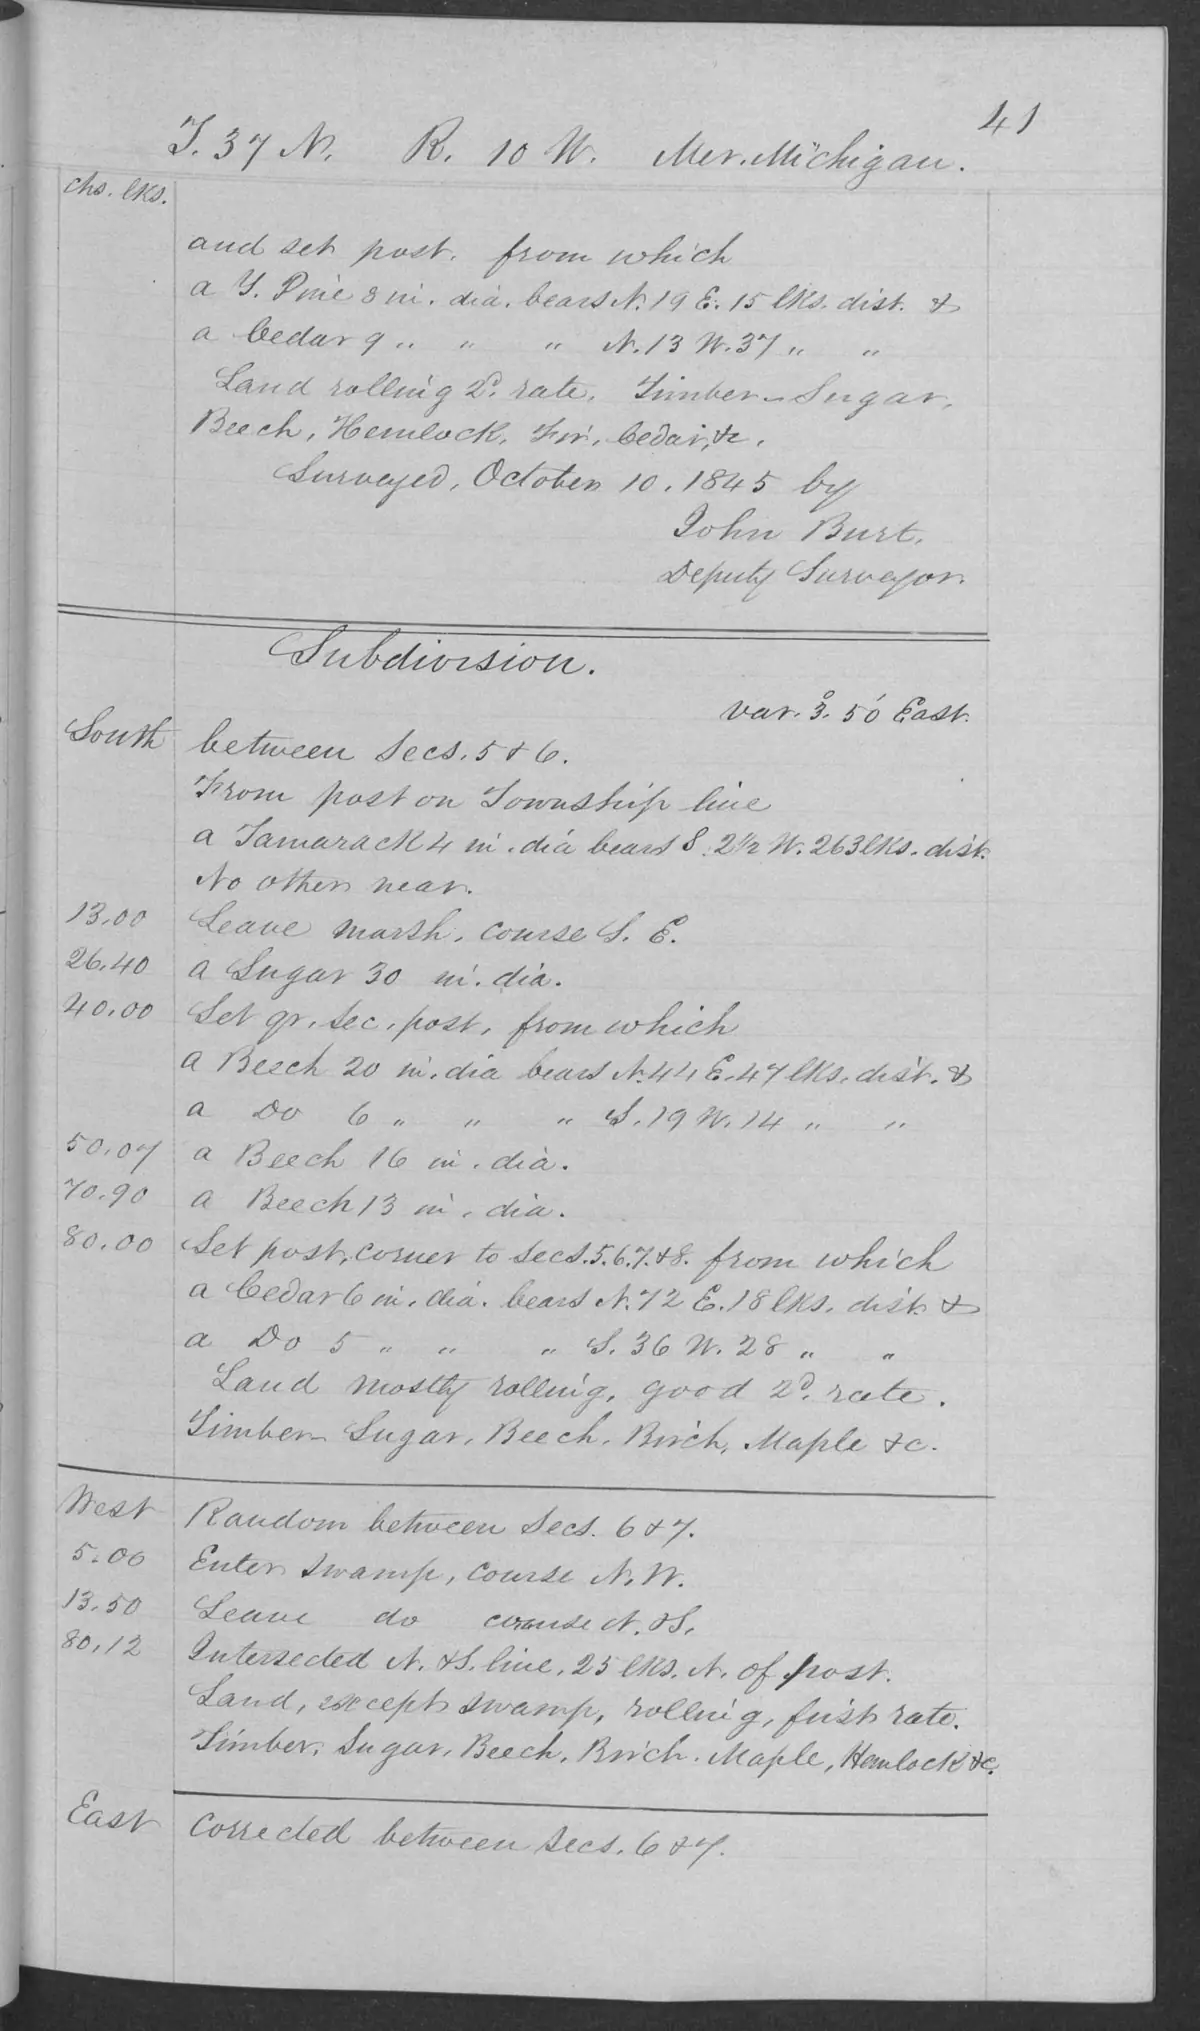 41
T. 37 N. R. 10 W. Mer. Michigan.
chs. lks.
and set post. from which
a Y. Pine 8 in. dia. bears N. 19 E. 15 lks. dist. &
a Cedar 9 " " " N. 13 W. 37 " "
Land rolling 2d. rate. Timber - Sugar,
Beech, Hemlock, Fir, Cedar, &c.
Surveyed, October 10, 1845 by
John Burt,
Deputy Surveyor.
Subdivision.
var. 3°. 50' East.
South between Secs. 5 & 6.
From post on Township line
a Tamarack 4 in. dia bears S. 2 1/2 W. 263 lks. dist.
No other near.
13.00 Leave marsh, course S. E.
26.40 a Sugar 30 in. dia.
40.00 Set qr. Sec. post, from which
a Beech 20 in. dia bears N. 44 E. 47 lks. dist. &
a Do 6 " " " S. 19 W. 14 " "
50.07 a Beech 16 in. dia.
70.90 a Beech 13 in. dia.
80.00 Set post, corner to Secs. 5. 6. 7. & 8. from which
a Cedar 6 in. dia. bears N. 72 E. 18 lks. dist. &
a Do 5 " " " S. 36 W. 28 " "
Land mostly rolling, good 2d. rate.
Timber - Sugar, Beech, Birch, Maple &c.
West Random between Secs. 6 & 7.
5.00 Enter swamp, course N. W.
13.50 Leave do course N. & S.
80.12 Intersected N. & S. line, 25 lks. N. of post.
Land, except swamp, rolling, first rate.
Timber, Sugar, Beech, Birch, Maple, Hemlock &c.
East Corrected between Secs. 6 & 7.